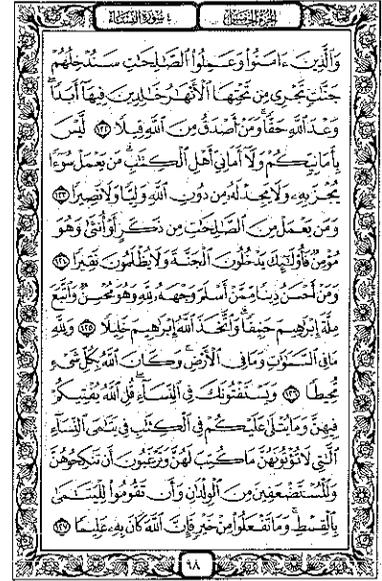 الجزء الخامس
سورة النساء
وَالَّذِينَ ءَامَنُوا وَعَمِلُوا الصَّالِحَاتِ سَنُدْخِلُهُمْ
جَنَّاتٍ تَجْرِي مِن تَحْتِهَا الْأَنْهَارُ خَالِدِينَ فِيهَا أَبَدًا
وَعْدَ اللَّهِ حَقًّا وَمَنْ أَصْدَقُ مِنَ اللَّهِ قِيلًا ١٢٢ لَّيْسَ
بِأَمَانِيِّكُمْ وَلَا أَمَانِيِّ أَهْلِ الْكِتَابِ مَن يَعْمَلْ سُوءًا
يُجْزَ بِهِ وَلَا يَجِدْ لَهُ مِن دُونِ اللَّهِ وَلِيًّا وَلَا نَصِيرًا ١٢٣
وَمَن يَعْمَلْ مِنَ الصَّالِحَاتِ مِن ذَكَرٍ أَوْ أُنثَى وَهُوَ
مُؤْمِنٌ فَأُولَئِكَ يَدْخُلُونَ الْجَنَّةَ وَلَا يُظْلَمُونَ نَقِيرًا ١٢٤
وَمَنْ أَحْسَنُ دِينًا مِّمَّنْ أَسْلَمَ وَجْهَهُ لِلَّهِ وَهُوَ مُحْسِنٌ وَاتَّبَعَ
مِلَّةَ إِبْرَاهِيمَ حَنِيفًا وَاتَّخَذَ اللَّهُ إِبْرَاهِيمَ خَلِيلًا ١٢٥ وَلِلَّهِ
مَا فِي السَّمَاوَاتِ وَمَا فِي الْأَرْضِ وَكَانَ اللَّهُ بِكُلِّ شَيْءٍ
مُّحِيطًا ١٢٦ وَيَسْتَفْتُونَكَ فِي النِّسَاءِ قُلِ اللَّهُ يُفْتِيكُمْ
فِيهِنَّ وَمَا يُتْلَى عَلَيْكُمْ فِي الْكِتَابِ فِي يَتَامَى النِّسَاءِ
الَّتِي لَا تُؤْتُونَهُنَّ مَا كُتِبَ لَهُنَّ وَتَرْغَبُونَ أَن تَنكِحُوهُنَّ
وَالْمُسْتَضْعَفِينَ مِنَ الْوِلْدَانِ وَأَن تَقُومُوا لِلْيَتَامَى
بِالْقِسْطِ وَمَا تَفْعَلُوا مِنْ خَيْرٍ فَإِنَّ اللَّهَ كَانَ بِهِ عَلِيمًا ١٢٧
٩٨